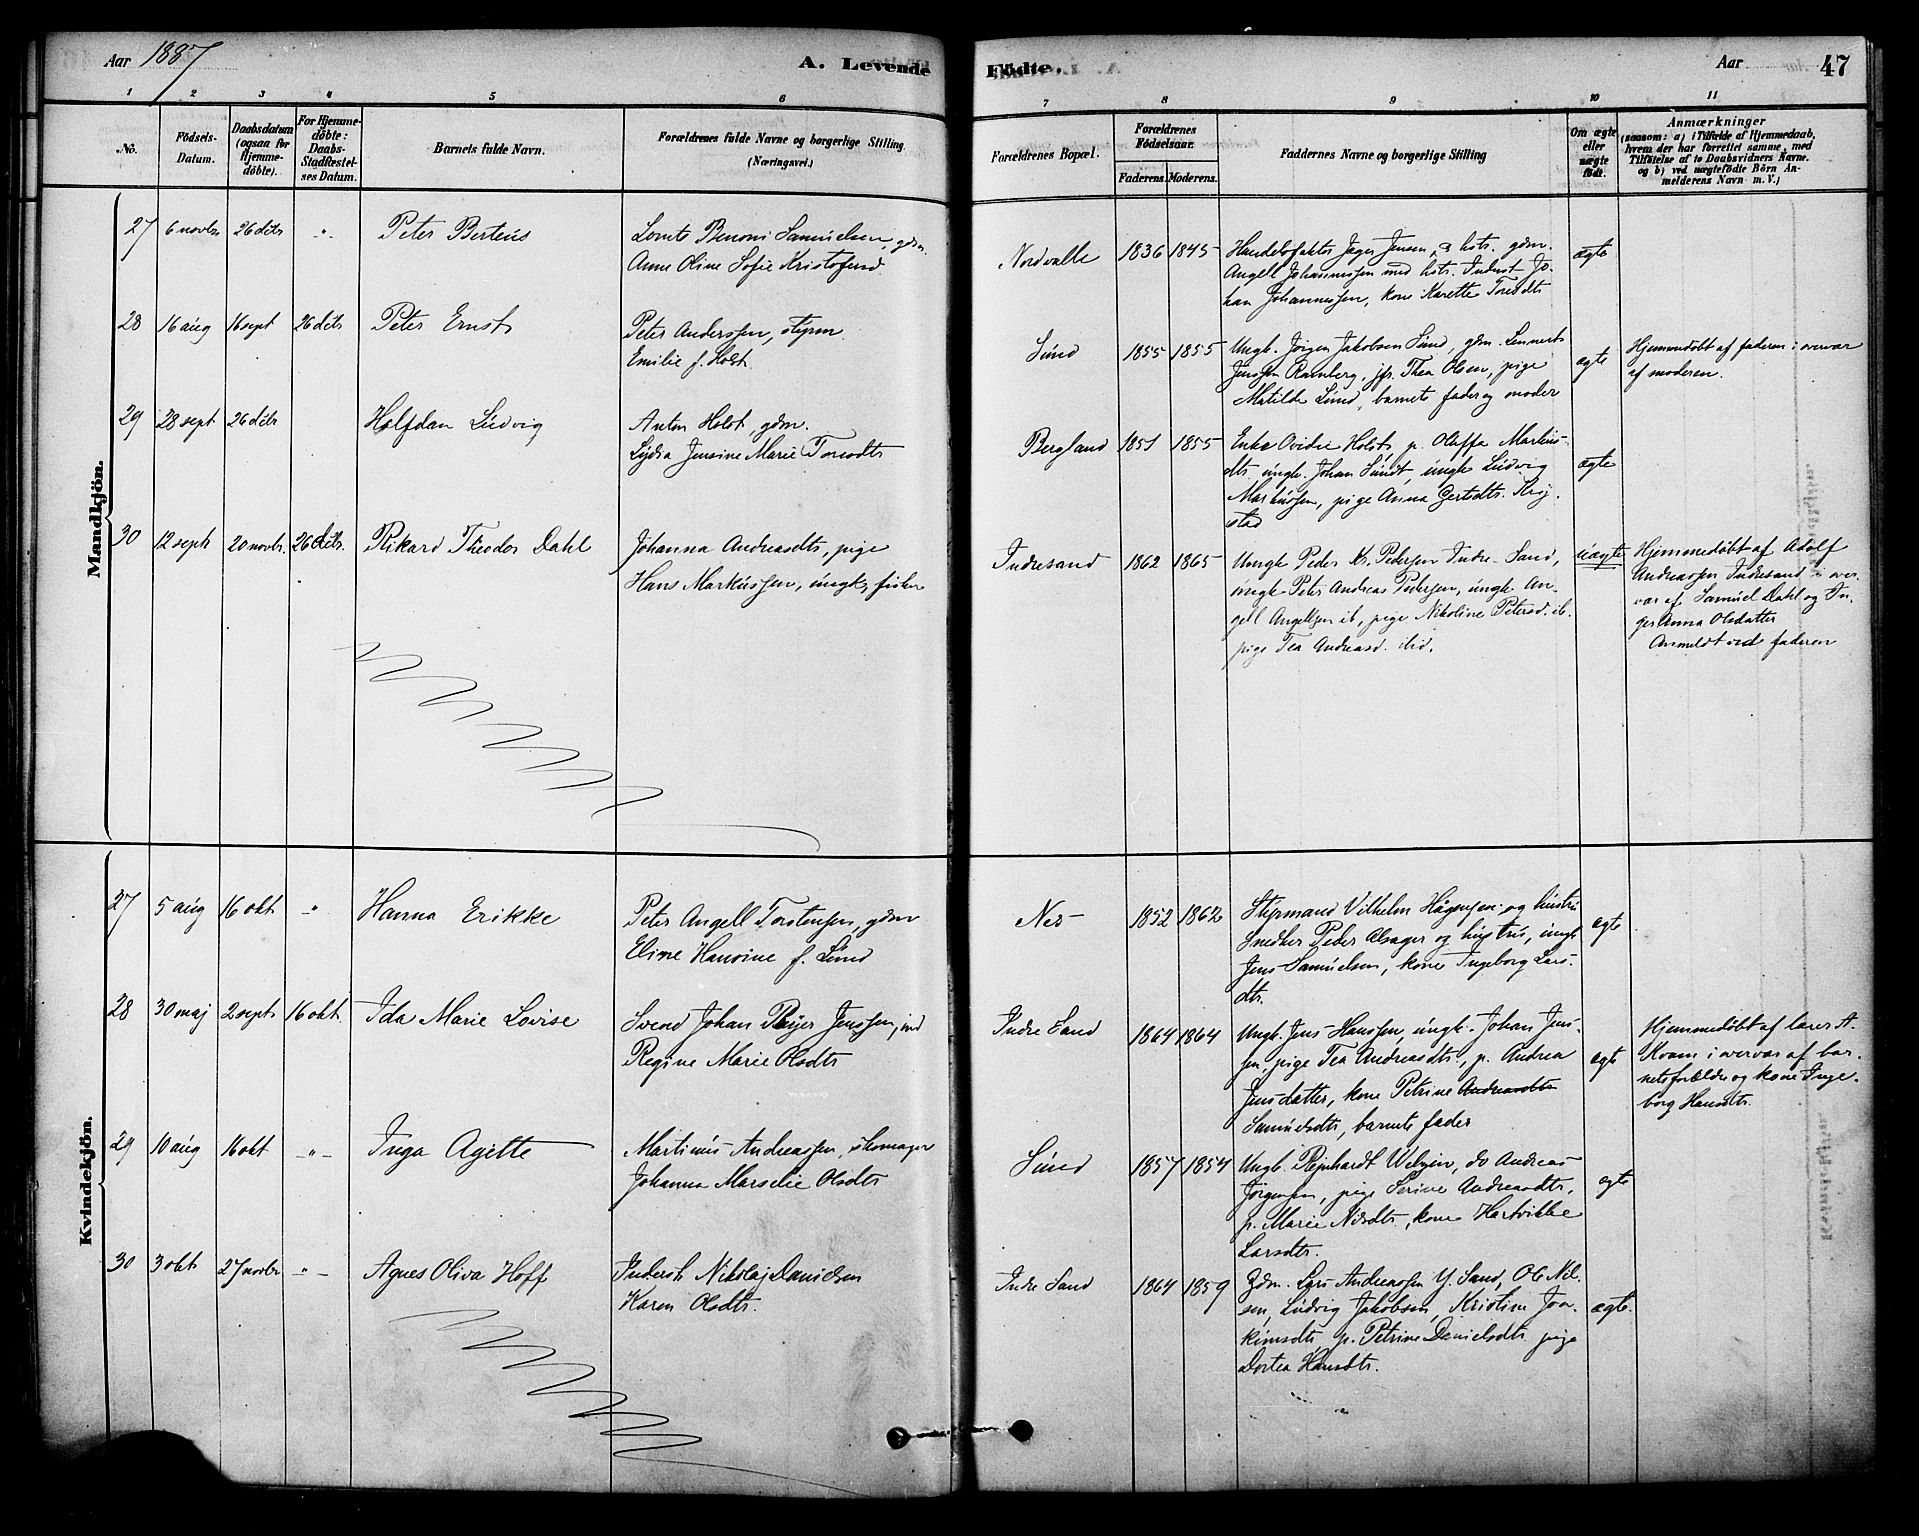 Aar 1887
A. Levende
Födte.
Aar
47
1
2
3
4
5
6
7
8
9
10
11
No.
Födsels-
Datum.
Daabsdatum
(ogsaa for
Hjemme-
döbte).
For Hjemme-
döbte:
Daabs-
Stadfæstel-
ses Datum.
Barnets fulde Navn.
Forældrenes fulde Navne og borgerlige Stilling
(Næringsvei.)
Forældrenes Bopæl.
Forældrenes
Födselsaar.
Faderens. Moderens.
Faddernes Navne og borgerlige Stilling
Om ægte
eller
uægte
födt.
Anmærkninger
(saasom: a) i Tilfælde af Hjemmedaab,
hvem der har forrettet samme, med
Tilföielse af to Daabsvidners Navne.
og b) ved uægtefödte Börn An-
melderens Navn m. V.)
Mandkjön.
27 6 novbr 26 dcbr " Peter Berteus
Benoni Samuelsen, gdm.
Anne Oline Sofie Kristofersd
Nordvalle 1836 1845
Jensen, & hstr. gdm.
Angell Johannessen med hstr. Inderst Jo-
han Johannessen, kone Karette Torsdtr
ægte
28 16 aug 16 sept 26 dcbr Peter Ernst
Peter Anderssen, styrm
Emilie f. Holst
Sund 1855 1855
Ungk. Jörgen Jakobsen Sund, gdm. Lennert
Jenssen Ramberg, jfr. Thea Olsen, pige
Matilde Lund, barnets fader og moder
ægte
Hjemmedöbt af faderen i overvær
af moderen.
29 28 sept 26 dcbr Halfdan Ludvig
Anton Holst, gdm.
Lydia Jensine Marie Torsdtr
Bergland 1851 1855
Enke Ovidie Holst, p. Olaffa Martins-
dtr, ungk. Johan Sundt, ungk Ludvig
Markussen, pige Anna Gertsdtr.
stad
ægte
30 12 sept 20 novbr. 26 dcbr. Rikard Theodor Dahl
Johanna Andreasdtr, pige
Hans Markussen, ungk, fisker
Indresand 1862 1865
Ungk Peder K. Pedersen Indre-Sand,
ungk Peter Andreas Pedersen, ungk An-
gell Angellsen ib, pige Nikoline Petersd. ib.
pige Tea Andreasd. ibid.
uægte
Hjemmedöbt af Adolf
Andreassen Indresand i over-
vær af Samuel Dahl og In-
ger Anna Olsdatter
Anmeldt ved faderen
Kvindekjön.
27 5 aug 16 okt -"- Hanna Erikke
Peter Angell Torstensen, gdm
Eline Hansine f. Lund
Nes- 1852 1862
Styrmand Vilhelm Hågensen og hustru
Snedker Peder Alsager og hustru, ungk
Jens Samuelsen, kone Ingeborg Lars-
dtr.
ægte
28 30 maj 2 sept 16 okt. Ida Marie Lovise
Svend Johan Jenssen, ind
Regine Marie Olsdtr
Indre Sand 1864 1864
Ungk. Jens Hanssen, ungk. Johan Jens-
sen, pige Tea Andreasdtr, p. Andrea
Jensdatter, kone Petrine Andreasdtr
Samuelsdtr, barnets fader
ægte
Hjemmedöbt af lærer A.
Kvam i overvær af bar-
netsforældre og kone Inge-
borg Hansdtr.
29 10 aug 16 okt -"- Inga Agitte
Martinus Andreassen, skomager
Johanna Marselie Olsdtr
Sund 1857 1854
Ungk. Reinhardt do Andreas
Jörgensen, pige Serine Andreasdtr,
p. Marie Nilsdtr, kone Hartvikke
Larsdtr.
ægte
30 3 okt 27 novbr -"- Agnes Oliva Hoff
Inderst Nikolaj Danielsen
Karen Olsdtr.
Indre Sand 1864 1859
Gdm. Lars Andreassen Y. Sand, Ole Nil-
sen, Ludvig Jakobsen, Kristine Joa-
kimsdtr, p. Petrine Danielsdtr, pige
Dortea Hansdtr.
ægte.